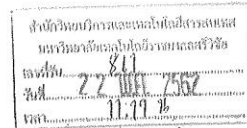 สำนักวิทยบริการและเทคโนโลยีสารสนเทศ
มหาวิทยาลัยเทคโนโลยีราชมงคลศรีวิชัย
เลขที่รับ 817
วันที่ 22 พ.ค. 2562
เวลา 11.29 น